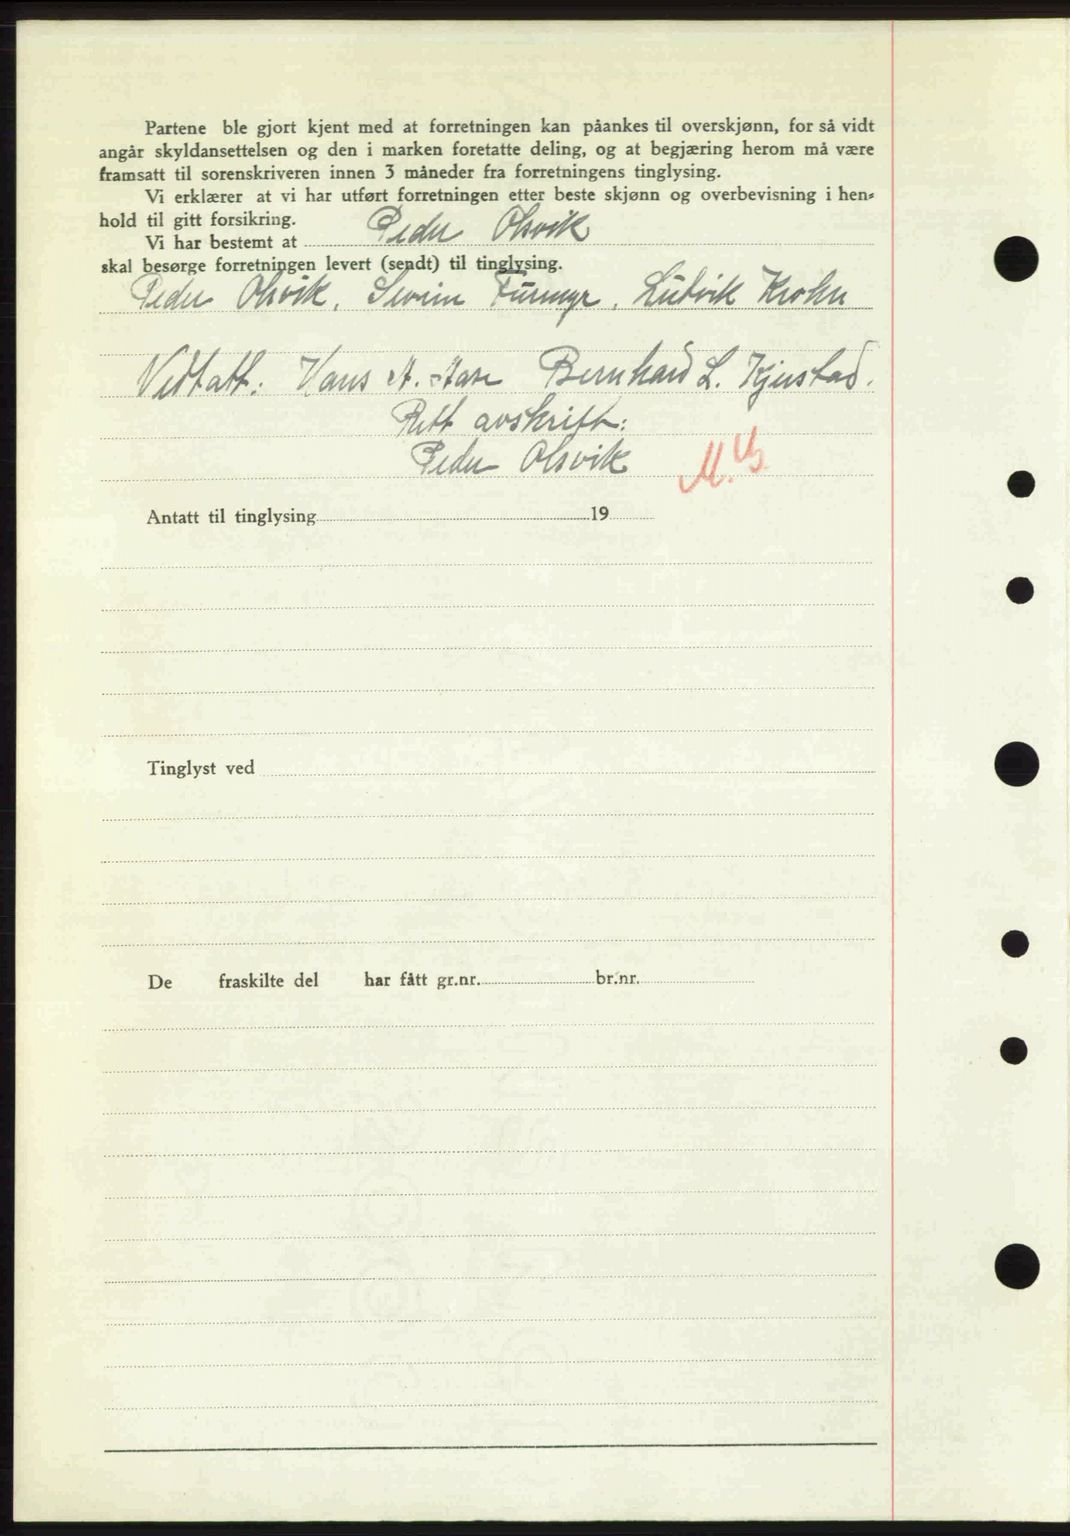 Partene ble gjort kjent med at forretningen kan påankes til overskjønn, for så vidt
angår skyldansettelsen og den i marken foretatte deling, og at begjæring herom må være
framsatt til sorenskriveren innen 3 måneder fra forretningens tinglysing.
Vi erklærer at vi har utført forretningen etter beste skjønn og overbevisning i hen-
hold til gitt forsikring.
Vi har bestemt at Peder Olsvik
skal besørge forretningen levert (sendt) til tinglysing.
Peder Olsvik, Severin Furmyr, Ludvik Krohn
Vedtatt: Hans A. Aase Bernhard L. Kjerstad.
Rett avskrift:
Peder Olsvik
Antatt til tinglysing 19
Tinglyst ved
De fraskilte del har fått gr.nr. br.nr.